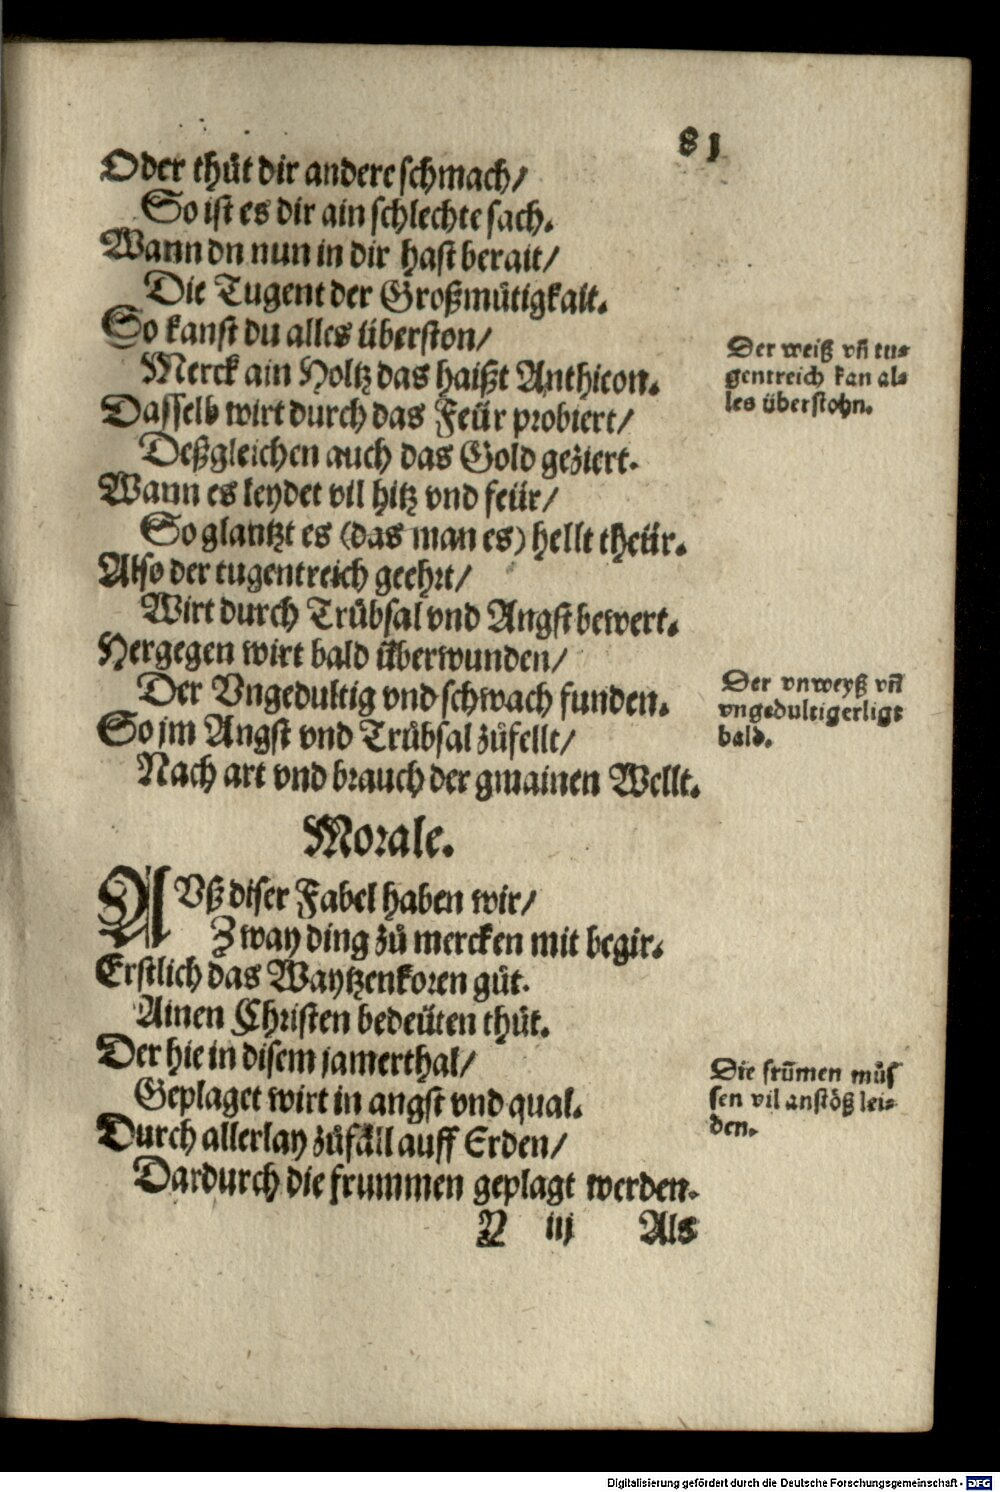 81
Oder thůt dir andere schmach/
So ist es dir ain schlechte sach.
Wann dn nun in dir hast berait/
Die Tugent der Großmütigkait.
So kanst du alles überston/
Merck ain Holtz das haißt Anthicon.
Dasselb wirt durch das Feür probiert/
Deßgleichen auch das Gold geziert.
Wann es leydet vil hitz vnd feür/
So glantzt es (das man es) hellt theür.
Also der tugentreich geehrt/
Wirt durch Trůbsal vnd Angst bewert.
Hergegen wirt bald überwunden/
Der Vngedultig vnd schwach funden.
So jm Angst vnd Trůbsal zůfellt/
Nach art vnd brauch der gmainen Wellt.
Der weiß vñ tu-
gentreich kan al-
les überstohn.
Der vnweyß vñ
vngedultigerligt
bald.
Morale.
AVß diser Fabel haben wir/
Zway ding zů mercken mit begir.
Erstlich das Waytzenkoren gůt.
Ainen Christen bedeüten thůt.
Der hie in disem jamerthal/
Geplaget wirt in angst vnd qual.
Durch allerlay zůfäll auff Erden/
Dardurch die frummen geplagt werden.
Die frũmen můs
sen vil anstöß lei-
den.
N iij Als
Digitalisierung gefördert durch die Deutsche Forschungsgemeinschaft - DFG